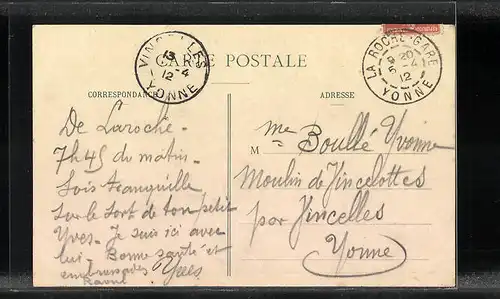 CARTE POSTALE
VINCELLES
13
12 -4
YONNE
LA ROCHE-GARE
9 20
5 -4
12
YONNE
CORRESPONDANCE
ADRESSE
De Laroche -
7h45 du matin -
Sois tranquille
sur le sort de ton petit
Yves - Je suis ici avec
lui - Bonne santé et
embrassades Yves
M me Boullé Yvonne
Moulin de Vincelottes
par Vincelles
Yonne